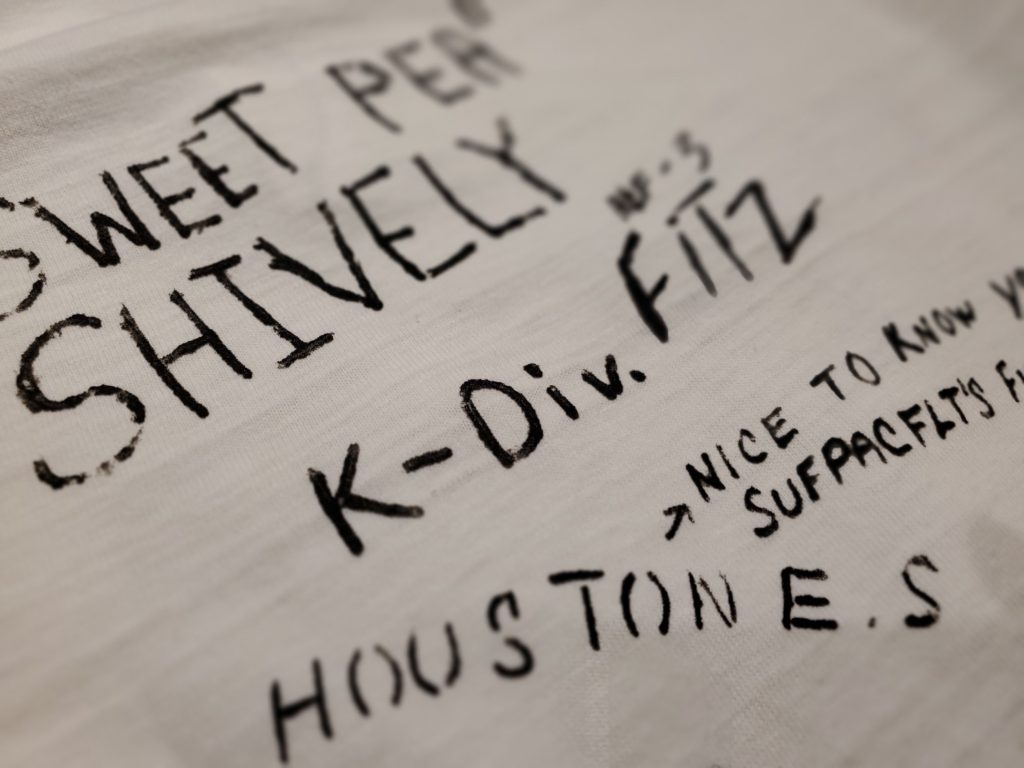 SWEET PEA"
SHIVELY
K-Div.
FITZ
NICE TO KNOW
SUFPACFLT'S
HOUSTON E.S